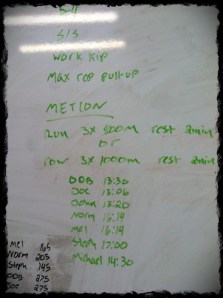 S/S
WORK Kip
Max rep pull-up
METCON
Run 3x 800m rest 2min
or
row 3x 1000m rest 2min
DOB 13:30
Joe 13:06
13:20
Norm 16:14
Mel 16:14
Steph 17:00
Michael 14:30
Mel 165
Norm 205
Steph 145
DOB 275
Joe 275